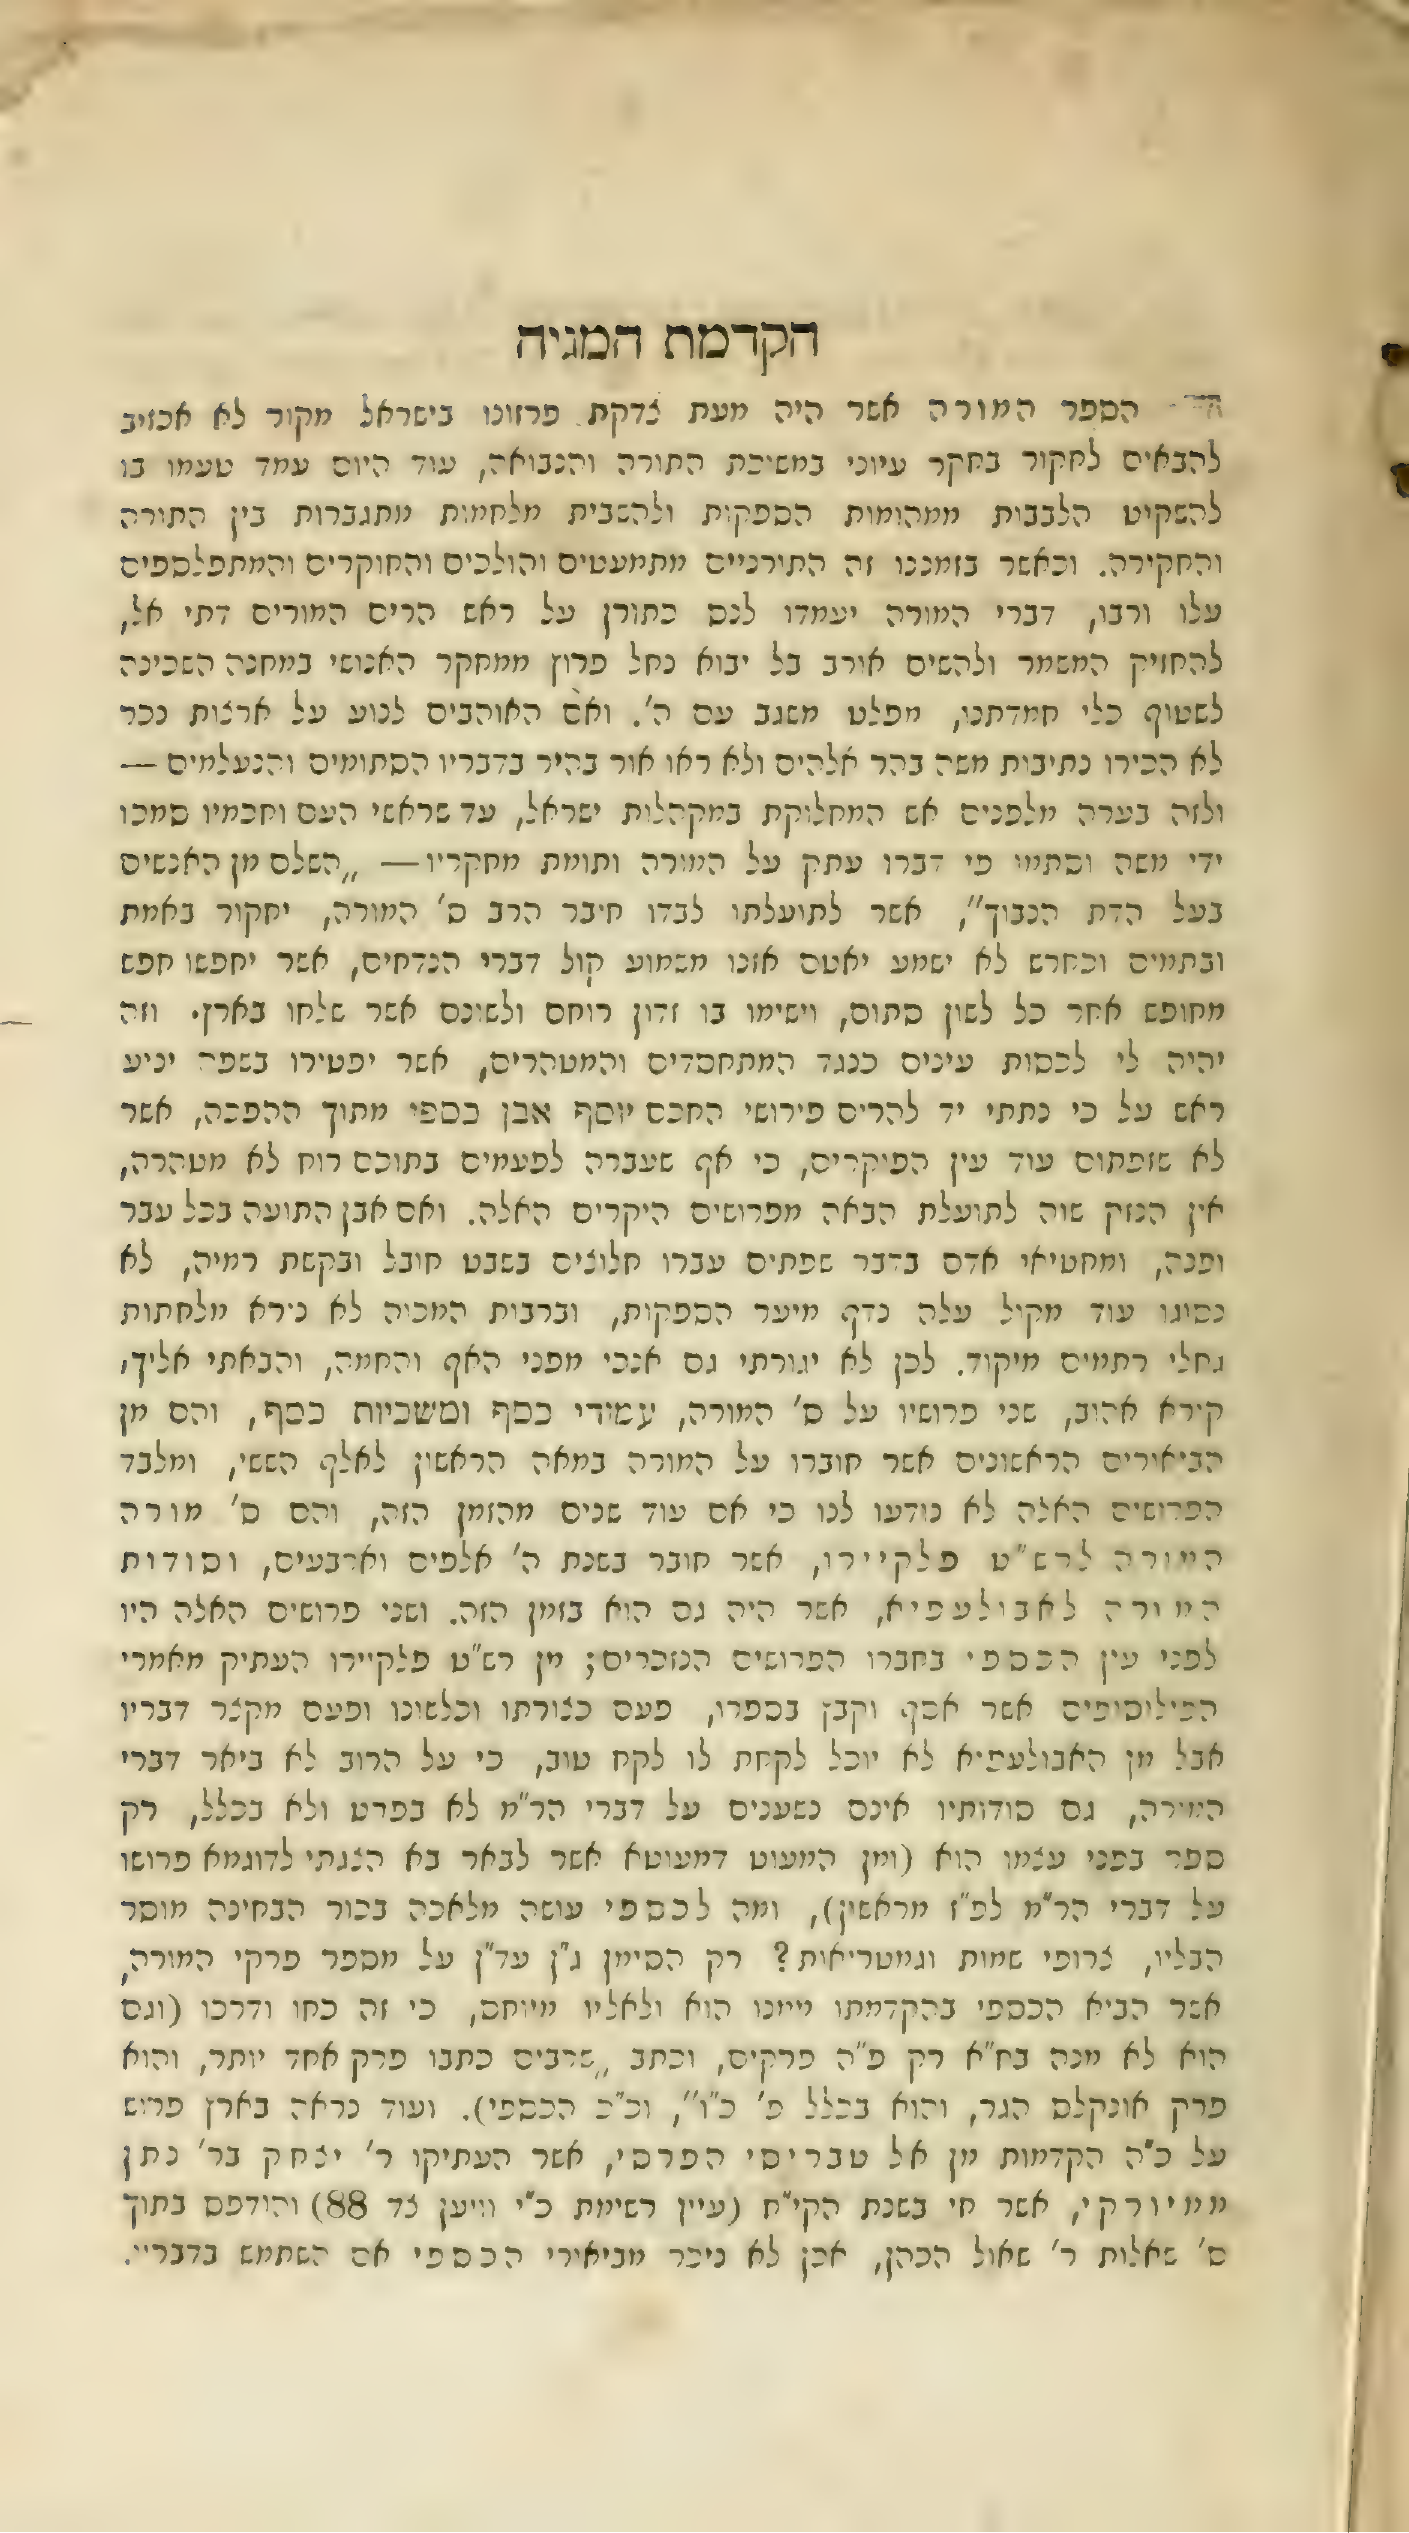 הקדמת המגיה
הספר המורה אשר היה מעת צדקת פרזונו בישראל מקור לא אכזיב
להבאים לחקור בחקר עיוני במשיכת התורה והנבואה, עוד היום עמד טעמו בו
להשקיט הלבבות ממהומות הספקות ולהשבית מלחמות מתגברות בין התורה
והחקירה. וכאשר בזמננו זה התורניים מתמעטים והולכים והחוקרים והמתפלספים
עלו ורבו, דברי המורה יעמדו לנס כתורן על ראש הרים המורים דתי אל,
להחזיק המשמר ולהשים אורב בל יבוא נחל פרוץ ממחקר האנושי במחנה השכינה
לשטוף כלי חמדתנו, מפלט משגב עם ה'. ואם האוהבים לנוע על ארצות נכר
לא הכירו נתיבות משה בהר אלהים ולא ראו אור בהיר בדבריו הסתומים והנעלמים —
ולזה בערה מלפנים אש המחלוקת במקהלות ישראל, עד שראשי העם וחכמיו סמכו
ידי משה וסתמו פי דברו עתק על המורה ותומת מחקריו — „השלם מן האנשים
בעל הדת הנבוך", אשר לתועלתו לבדו חיבר הרב ס' המורה, יחקור באמת
ובתמים וכחרש לא ישמע יאטם אזנו משמוע קול דברי הנדחים, אשר יחפשו חפש
מחופש אחר כל לשון סתום, וישימו בו זדון רוחם ולשונם אשר שלחו בארץ. וזה
יהיה לי לכסות עינים כנגד המתחסדים והמטהרים, אשר יפטירו בשפה יניע
ראש על כי נתתי יד להרים פירושי החכם יוסף אבן כספי מתוך ההפכה, אשר
לא שזפתום עוד עין הפיקרים, כי אף שעברה לפעמים בתוכם רוח לא מטהרה,
אין הנזק שוה לתועלת הבאה מפרושים היקרים האלה. ואם אבן התועה בכל עבר
ופנה, ומחטיאי אדם בדבר שפתים עברו חלוצים בשבט חובל ובקשת רמיה, לא
נסוגו עוד מקול עלה נדף מיער הספקות, וברבות המכיה לא נירא מלחתות
גחלי רתמים מיקוד. לכן לא יגורתי גם אנכי מפני האף והחמה, והבאתי אליך,
קורא אהוב, שני פרושיו על ס' המורה, עמודי כסף ומשכיות כסף, והם מן
הביאורים הראשונים אשר חוברו על המורה במאה הראשון לאלף הששי, ומלבד
הפרושים האלה לא נודעו לנו כי אם עוד שנים מהזמן הזה, והם ס' מורה
המורה לרש"ט פלקיירו, אשר חובר בשנת ה' אלפים וארבעים, וסודות
המורה לאבולעפיא, אשר היה גם הוא בזמן הזה. ושני פרושים האלה היו
לפני עין הכספי בחברו הפרושים הנזכרים; מן רש"ט פלקיירו העתיק מאמרי
הפילוסופים אשר אסף וקבץ בספרו, פעם כצורתו וכלשונו ופעם מקצר דבריו
אבל מן האבולעפיא לא יוכל לקחת לו לקח טוב, כי על הרוב לא ביאר דברי
המורה, גם סודותיו אינם נשענים על דברי הר"מ לא בפרט ולא בכלל, רק
ספר בפני עצמו הוא (ומן המעוט דמעוטא אשר לבאר בא הצגתי לדוגמא פרושו
על דברי הר"מ לפ"ז מראשון), ומה לכספי עושה מלאכה בכור הבחינה מוסר
הבליו, צרופי שמות וגמטריאות? רק הסימן ג"ן עד"ן על מספר פרקי המורה,
אשר הביא הכספי בהקדמתו ממנו הוא ולאליו מיוחס, כי זה כחו ודרכו (וגם
הוא לא מנה בח"א רק פ"ה פרקים, וכתב „שרבים כתבו פרק אחד יותר, והוא
פרק אונקלס הגר, והוא בכלל פ' כ"ו", וכ"כ הכספי). ועוד נראה בארץ פרוש
על כ"ה הקדמות מן אל טבריסי הפרסי, אשר העתיקו ר' יצחק בר' נתן
ממיורקי, אשר חי בשנת הקי"ח (עיין רשימת כ"י וויען צד 88) והודפס בתוך
ס' שאלות ר' שאול הכהן, אכן לא ניכר מביאורי הכספי אם השתמש בדבריו.